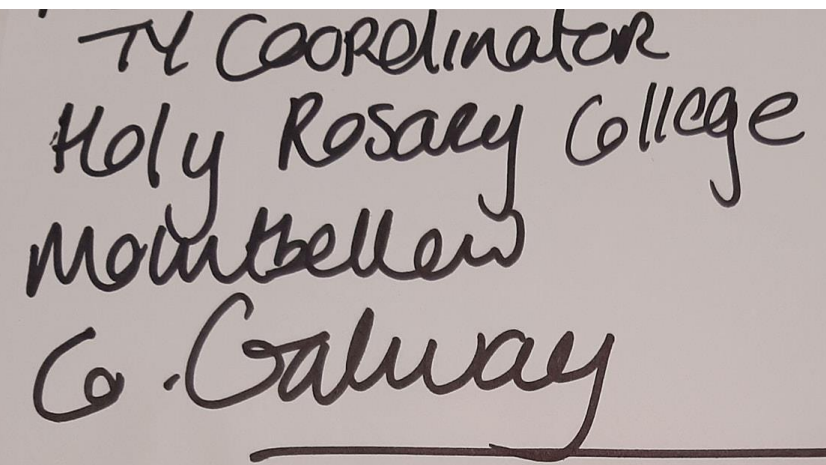 TY Coordinator
Holy Rosary College
Mountbellew
Co. Galway